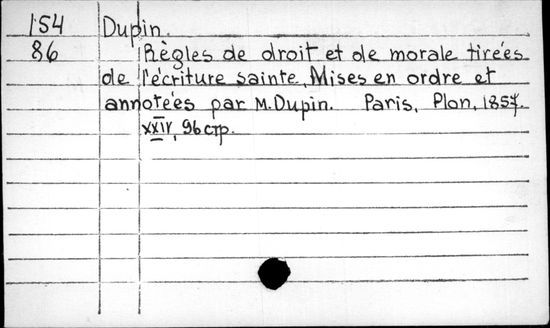 154 Dupin.
86 Règles de droit et de morale tirées
de l'écriture sainte, Mises en ordre et
annotées par M. Dupin. Paris, Plon, 1857.
XXIV, 96 стр.